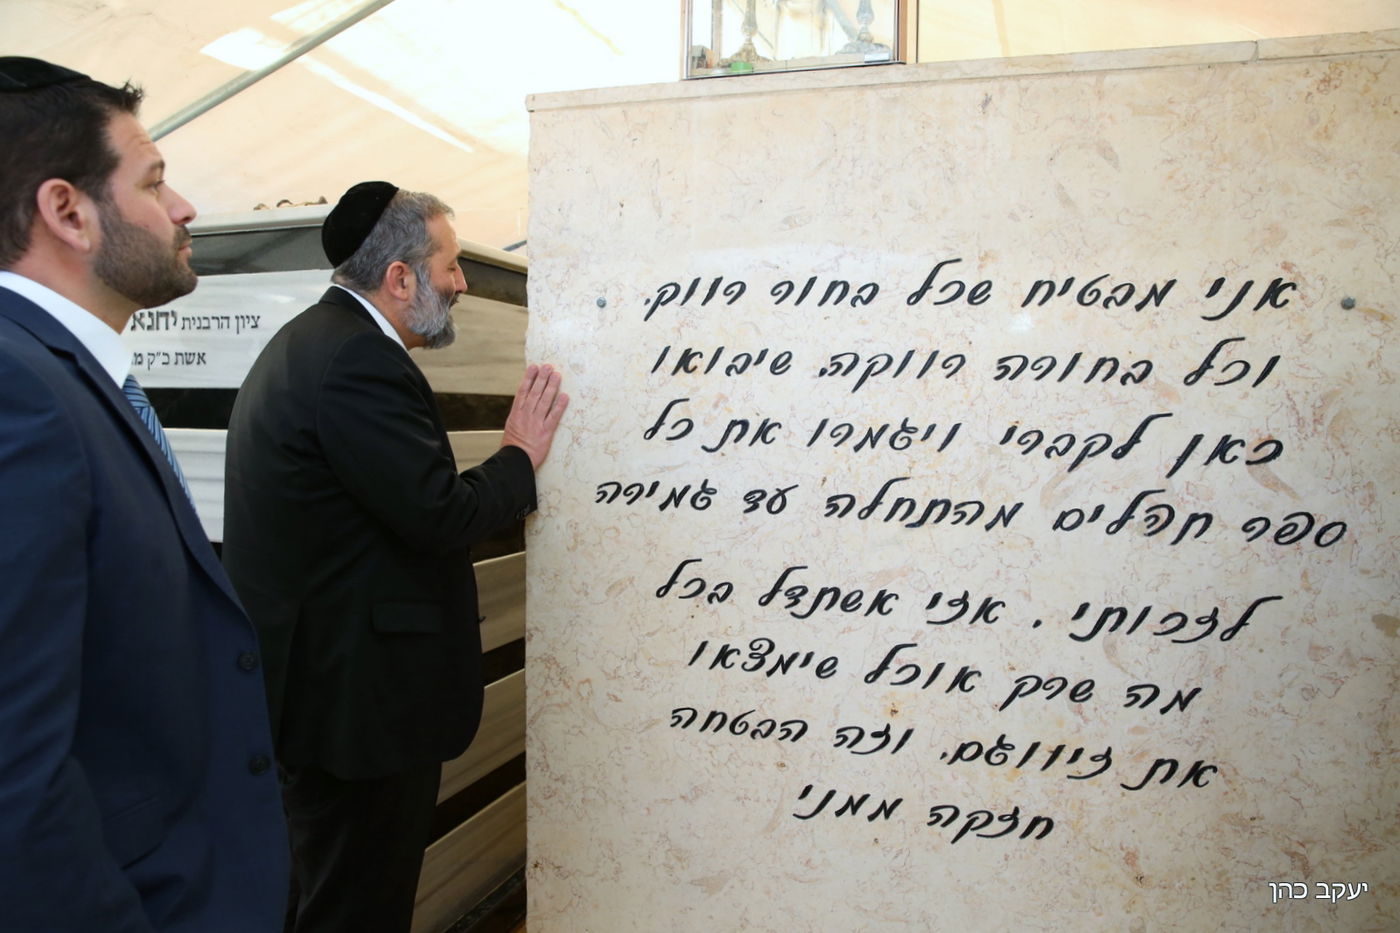 אני מבטיח שכל בחור רווק.
וכל בחורה רווקה, שיבואו
כאן לקברי ויגמרו את כל
ספר תהלים מהתחלה עד גמירה
לזכותי. אזי אשתדל בכל
מה שרק אוכל שימצאו
את זיווגם. וזה הבטחה
חזקה ממני
ציון הרבנית
אשת כ״ק
יעקב כהן